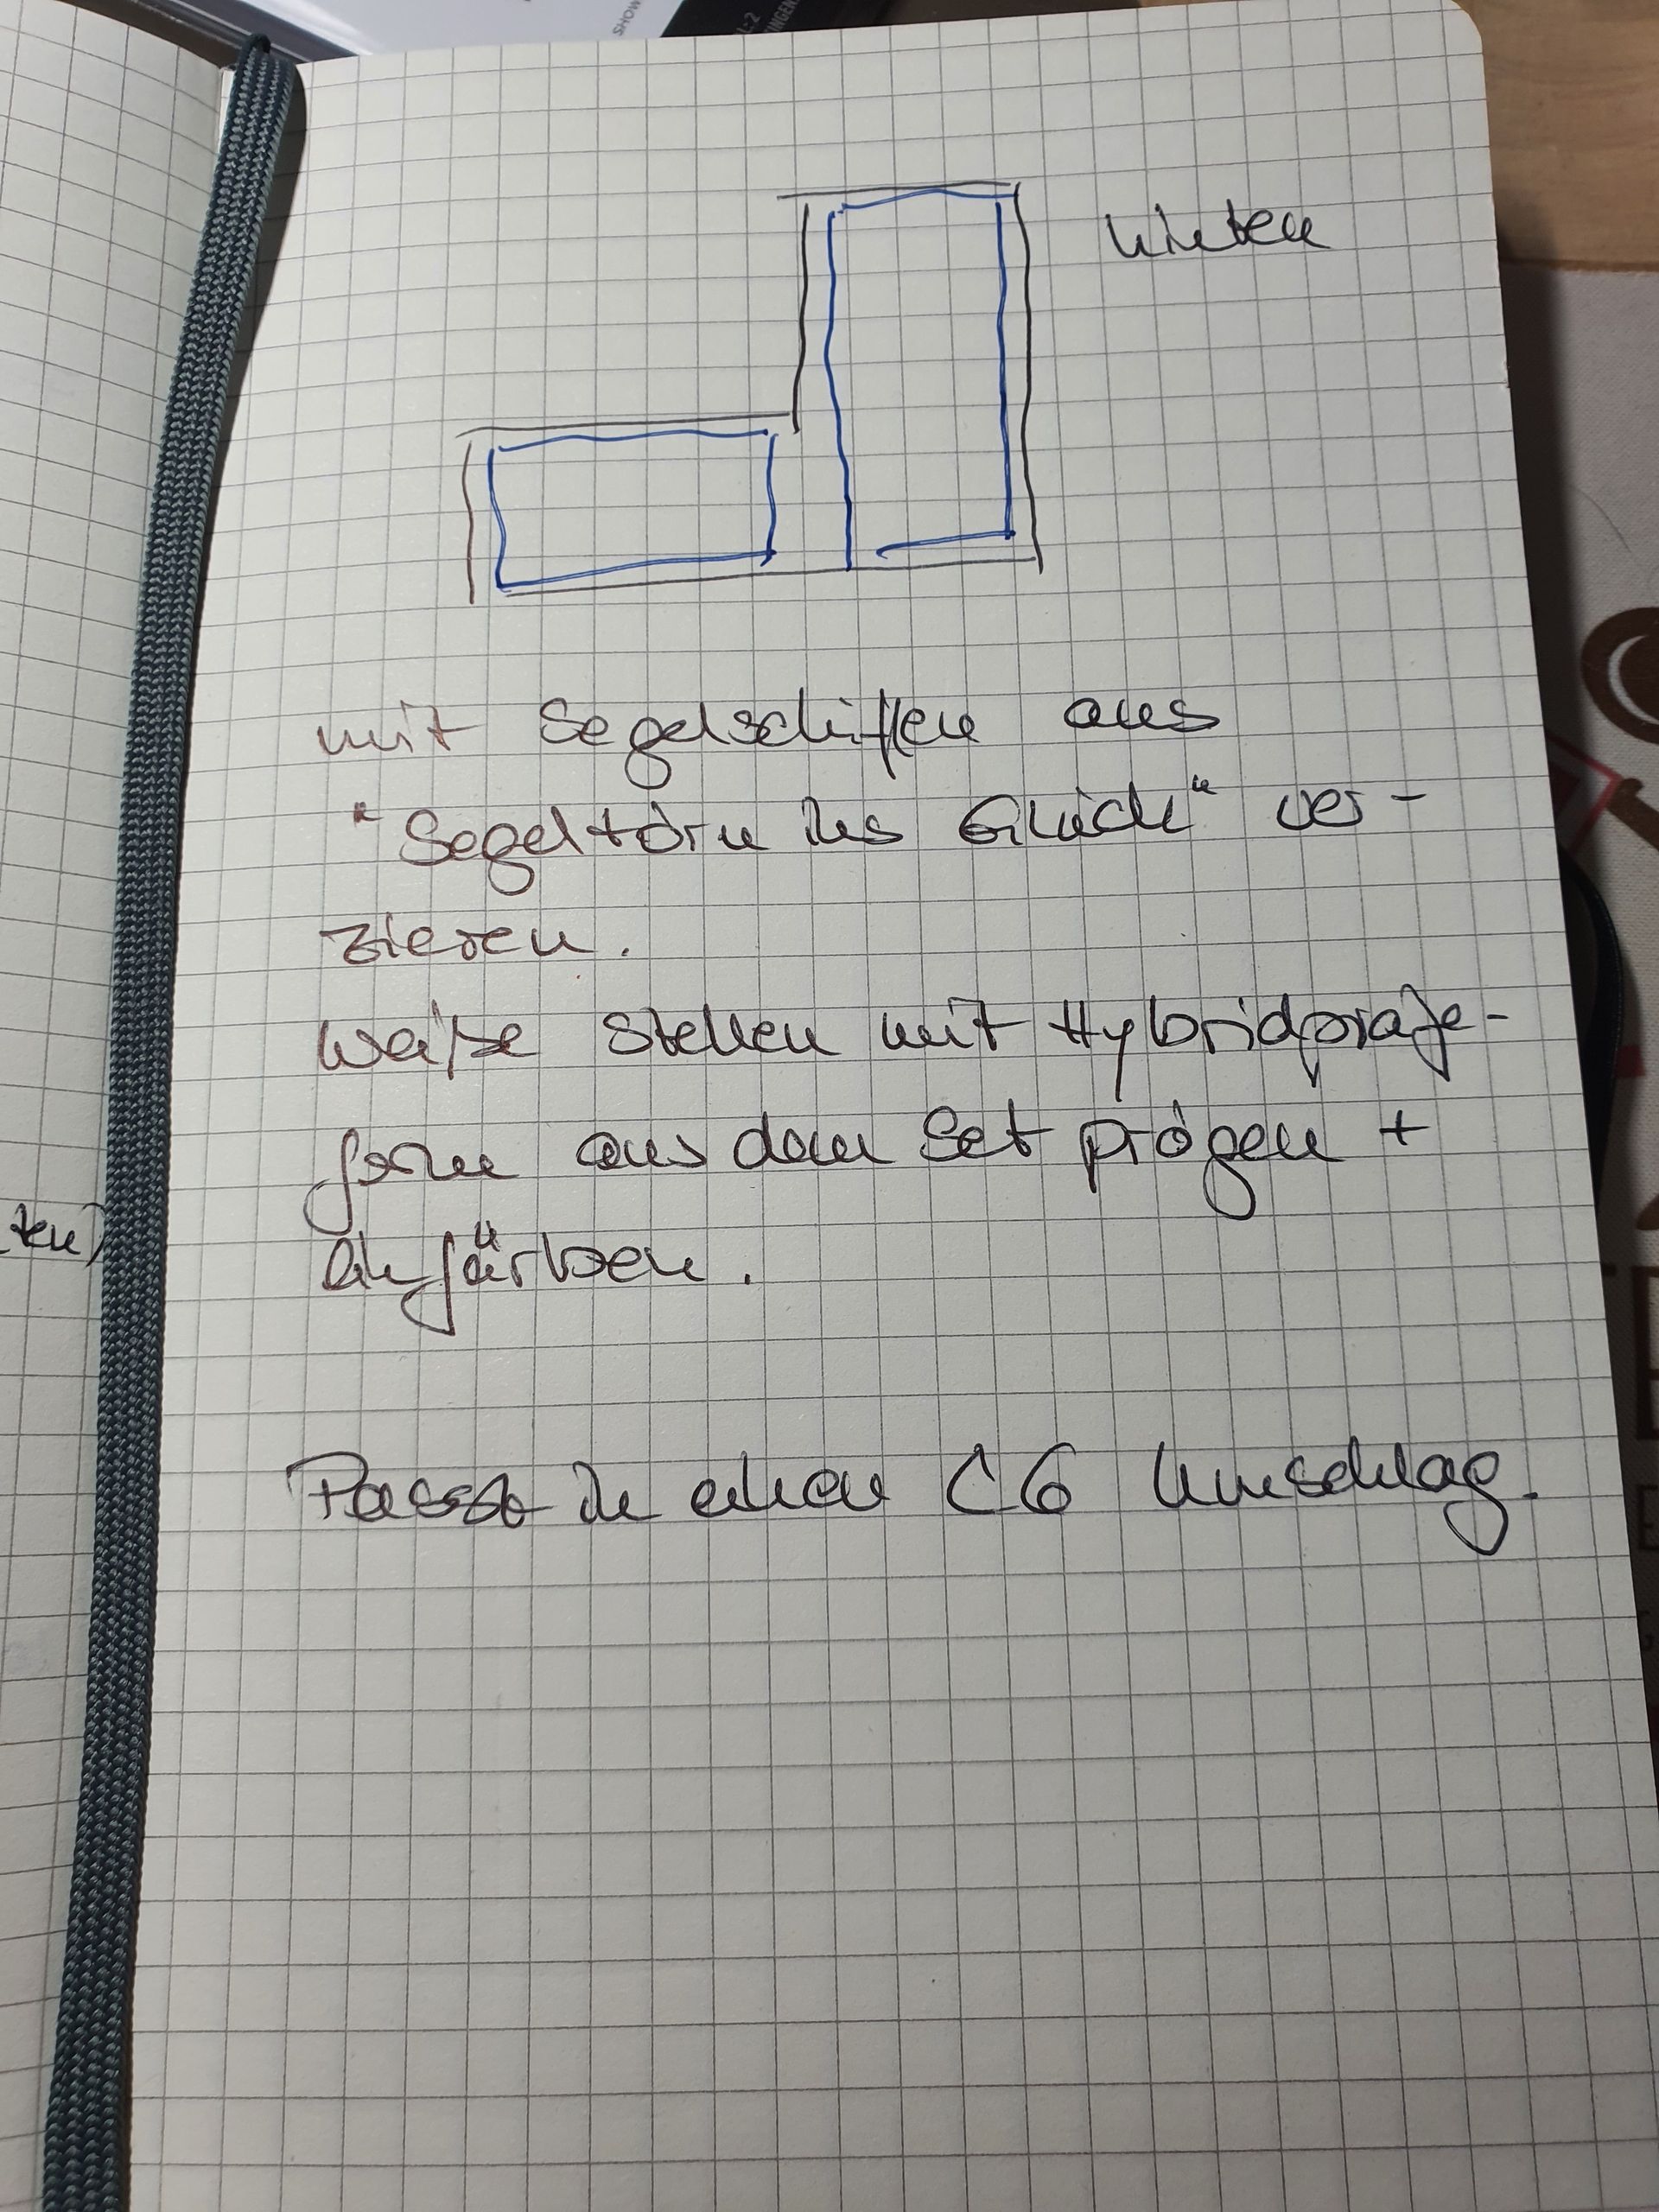 SHOW
hinten
mit Segelschiffen aus
"Segeltörn ins Glück" ver-
zieren.
Weiße Stellen mit Hybridpräge-
form aus dem Set prägen +
einfärben.
ten)
Passt in einen C6 Umschlag.